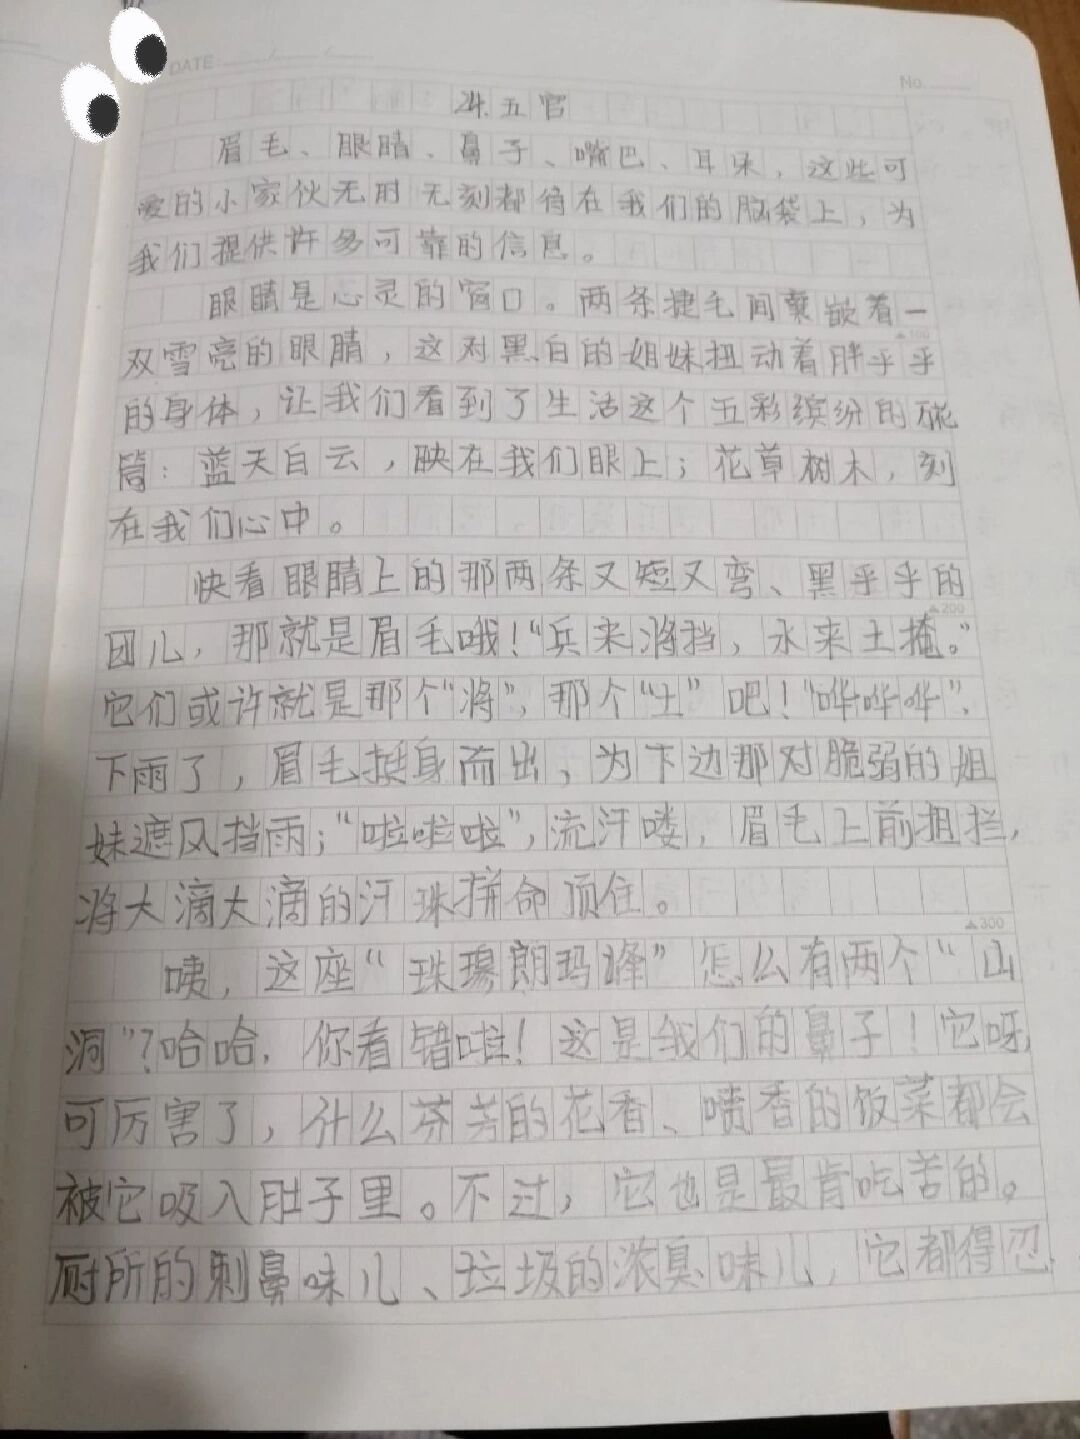 DATE: / /
No.
24.五官
眉毛、眼睛、鼻子、嘴巴、耳朵，这些可
爱的小家伙无时无刻都待在我们的脑袋上，为
我们提供许多可靠的信息。
眼睛是心灵的窗口。两条捷毛间嵌着一
▲100
双雪亮的眼睛，这对黑白的姐妹扭动着胖乎乎
的身体，让我们看到了生活这个五彩缤纷的
筒：蓝天白云，映在我们眼上；花草树木，刻
在我们心中。
快看眼睛上的那两条又短又弯、黑乎乎的
▲200
团儿，那就是眉毛哦！“兵来将挡，水来土掩。”
它们或许就是那个“将”，那个“土”吧！“哗哗哗”，
下雨了，眉毛挺身而出，为下边那对脆弱的姐
妹遮风挡雨；“啦啦啦”，流汗喽，眉毛上前阻拦，
将大滴大滴的汗珠拼命顶住。
▲300
咦，这座“珠穆朗玛峰”怎么有两个“山
洞”？哈哈，你看错啦！这是我们的鼻子！它呀，
可厉害了，什么芬芳的花香、喷香的饭菜都会
被它吸入肚子里。不过，它也是最肯吃苦的。
厕所的刺鼻味儿、垃圾的浓臭味儿，它都得忍